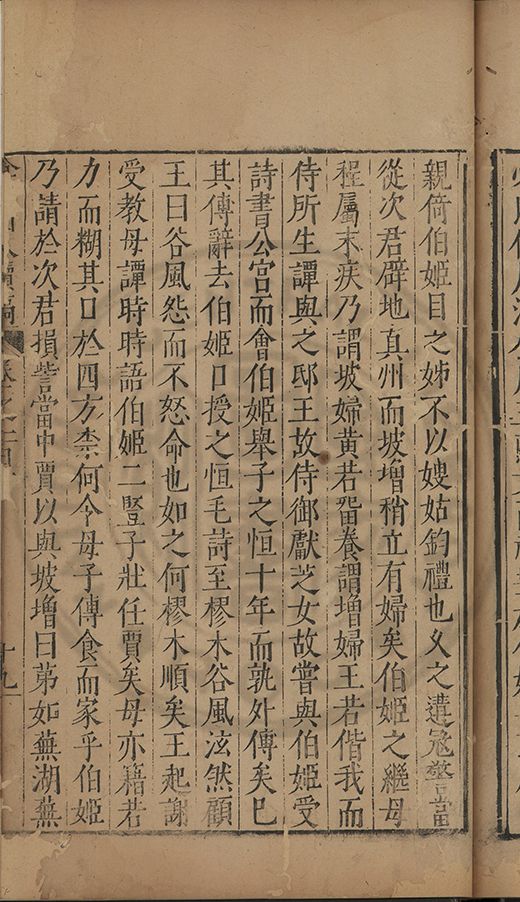 親倚伯姬目之姊不以嫂姑鈞禮也久之遘寇警當
從次君辟地真州而坡增稍立有婦矣伯姬之繼母
程屬末疾乃謂坡婦黃若畱養謂增婦王若偕我而
侍所生譚與之邸王故侍御獻芝女故嘗與伯姬受
詩書公宮而會伯姬舉子之恒十年而孰外傳矣已
其傳辭去伯姬口授之恒毛詩至樛木谷風泫然顧
王曰谷風怨而不怒命也如之何樛木順矣王起謝
受教母譚時時語伯姬二豎子壯任賈矣母亦籍若
力而糊其口於四方柰何令母子傳食而家乎伯姬
乃請於次君損訾當中賈以與坡增曰第如蕪湖蕪
十九